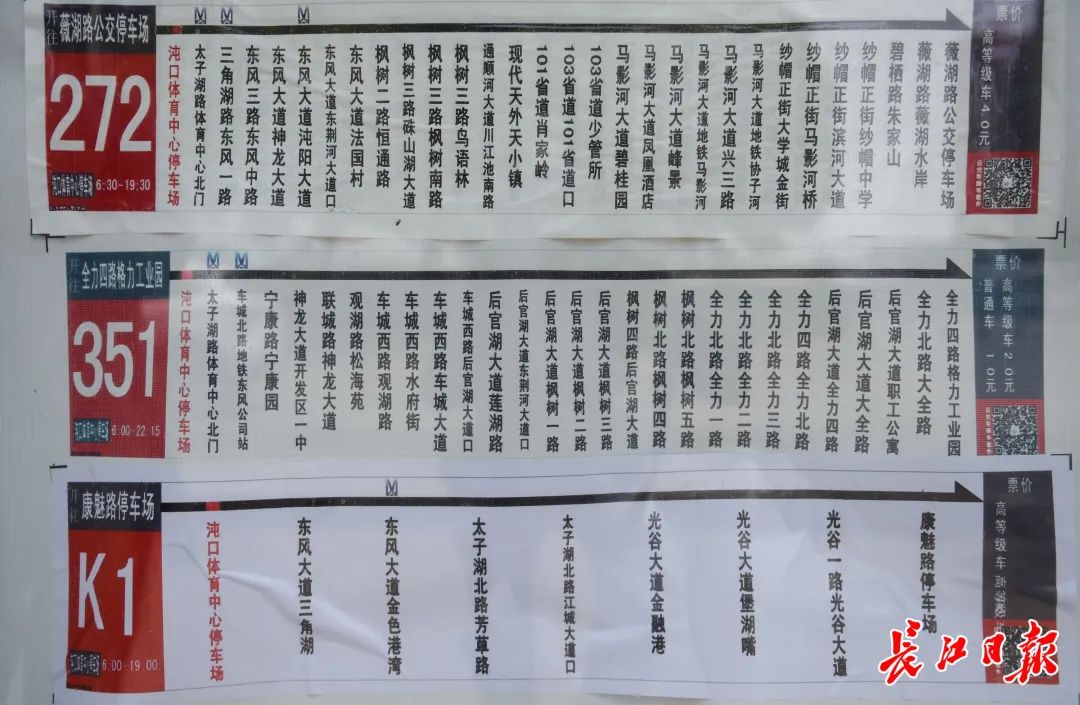 开往
薇湖路公交停车场
272
沌口体育中心停车场
6:30-19:30
沌口体育中心停车场
太子湖路体育中心北门
三角湖路东风一路
东风三路东风中路
东风大道神龙大道
东风大道沌阳大道
东风大道东荆河大道口
东风大道法国村
枫树二路恒通路
枫树三路硃山湖大道
枫树三路枫树南路
枫树三路鸟语林
通顺河大道川江池南路
现代天外天小镇
101省道肖家岭
103省道101省道口
103省道少管所
马影河大道碧桂园
马影河大道凤凰酒店
马影河大道峰景
马影河大道地铁马影河
马影河大道兴三路
马影河大道地铁协子河
纱帽正街大学城金街
纱帽正街马影河桥
纱帽正街滨河大道
纱帽正街纱帽中学
碧栖路朱家山
薇湖路薇湖水岸
薇湖路公交停车场
票价
高等级车4.0元
开往
全力四路格力工业园
351
沌口体育中心停车场
6:00-22:15
沌口体育中心停车场
太子湖路体育中心北门
车城北路地铁东风公司站
宁康路宁康园
神龙大道开发区一中
联城路神龙大道
观湖路松海苑
车城西路观湖路
车城西路水府街
车城西路车城大道
车城西路后官湖大道口
后官湖大道莲湖路
后官湖大道东荆河大道口
后官湖大道枫树一路
后官湖大道枫树二路
后官湖大道枫树三路
枫树四路后官湖大道
枫树北路枫树四路
枫树北路枫树五路
全力北路全力一路
全力北路全力二路
全力北路全力三路
全力四路全力北路
后官湖大道全力四路
后官湖大道大全路
后官湖大道职工公寓
全力北路大全路
全力四路格力工业园
票价
高等级车2.0元
普通车 1.0元
开往
康魅路停车场
K1
沌口体育中心停车场
6:00-19:00
沌口体育中心停车场
东风大道三角湖
东风大道金色港湾
太子湖北路芳草路
太子湖北路江城大道口
光谷大道金融港
光谷大道堡湖嘴
光谷一路光谷大道
康魅路停车场
票价
高等级车
长江日报